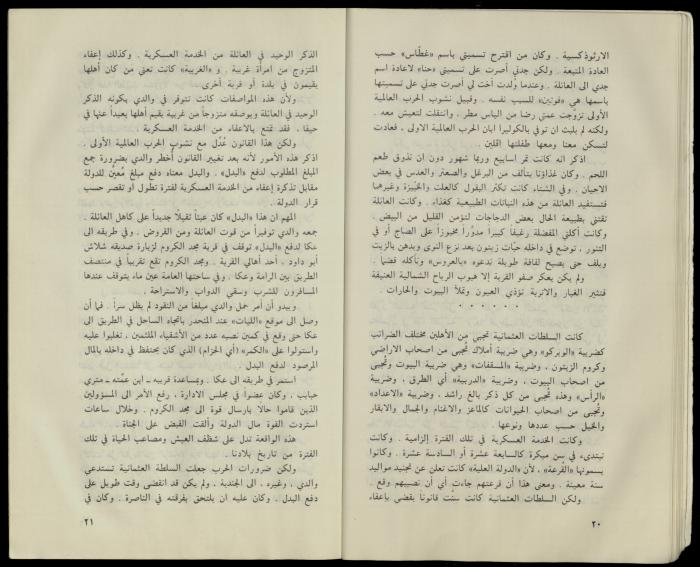 الارثوذكسية . وكان من اقترح تسميتي باسم «غطّاس» حسب
العادة المتبعة . ولكن جدتي أصرت على تسميتي «حنا» لاعادة اسم
جدي الى العائلة . وعندما وُلدت أخت لي أصرت جدتي على تسميتها
باسمها هي «فوتين» للسبب نفسه . وقبيل نشوب الحرب العالمية
الأولى تزوّجت عمتي رضا من الياس مطر . وانتقلت لتعيش معه .
ولكنه لم يلبث ان توفي بالكوليرا ابان الحرب العالمية الاولى ، فعادت
لتسكن معنا ومعها طفلتها إڤلين .
اذكر انه كانت تمر اسابيع وربما شهور دون ان نذوق طعم
اللحم . وكان غذاؤنا يتألف من البرغل والصعتر والعدس في بعض
الاحيان . وفي الشتاء كانت تكثر البقول كالعلت والخبّيزة وغيرهما
فتستفيد العائلة من هذه النباتات الطبيعية كغذاء . وكانت العائلة
تقتني بطبيعة الحال بعض الدجاجات لنؤمن القليل من البيض .
وكانت أكلتي المفضلة رغيفا كبيرا مدوّراً مخبوزاً على الصاج أو في
التنور ، توضع في داخله حبّات زيتون بعد نزع النوى ويدهن بالزيت
ويلف حتى يصبح لفافة طويلة ندعوه «بالعروس» ونأكله قضماً .
ولم يكن يعكر صفو القرية إلا هبوب الرياح الشمالية العتيقة
فتثير الغبار والاتربة تؤذي العيون وتملأ البيوت والحارات .
. . . . . .
كانت السلطات العثمانية تجبي من الأهلين مختلف الضرائب
كضريبة «الويركو» وهي ضريبة أملاك تُجبى من اصحاب الاراضي
وكروم الزيتون ، وضريبة «المسقفات» وهي ضريبة البيوت وتُجبى
من اصحاب البيوت ، وضريبة «الدربية» أي الطرق ، وضريبة
«الرأس» وهذه تُجبى من كل ذكر بالغ راشد ، وضريبة «الاعداد»
وتُجبى من اصحاب الحيوانات كالماعز والاغنام والجمال والابقار
والخيل حسب عددها ونوعها .
وكانت الخدمة العسكرية في تلك الفترة إلزامية . وكانت
تبتدىء في سن مبكرة كالسابعة عشرة أو السادسة عشرة . وكانوا
يسمونها «القُرعة» ، لأن «الدولة العلية» كانت تعلن عن تجنيد مواليد
سنة معينة . ومعنى هذا أن قرعتهم جاءت أي أن نصيبهم وقع .
ولكن السلطات العثمانية كانت سنّت قانونا يقضي بإعفاء
٢٠
الذكر الوحيد في العائلة من الخدمة العسكرية . وكذلك إعفاء
المتزوج من امرأة غريبة . و «الغريبة» كانت تعني من كان أهلها
يقيمون في بلدة أو قرية أخرى .
ولأن هذه المواصفات كانت تتوفر في والدي بكونه الذكر
الوحيد في العائلة وبوصفه متزوجاً من غريبة يقيم أهلها بعيداً عنها في
حيفا ، فقد تمتع بالاعفاء من الخدمة العسكرية .
ولكن هذا القانون عُدّل مع نشوب الحرب العالمية الأولى .
اذكر هذه الأمور لأنه بعد تغيير القانون أُخطر والدي بضرورة جمع
المبلغ المطلوب لدفع «البدل» . والبدل معناه دفع مبلغ مُعيّن للدولة
مقابل تذكرة إعفاء من الخدمة العسكرية لفترة تطول أو تقصر حسب
قرار الدولة .
المهم ان هذا «البدل» كان عبئاً ثقيلاً جديداً على كاهل العائلة .
جمعه والدي توفيراً من قوت العائلة ومن القروض . وفي طريقه الى
عكا لدفع «البدل» توقف في قرية مجد الكروم لزيارة صديقه شلاش
أبو داود ، أحد أهالي القرية . ومجد الكروم تقع تقريباً في منتصف
الطريق بين الرامة وعكا . وفي ساحتها العامة عين ماء يتوقف عندها
المسافرون للشرب وسقي الدواب والاستراحة .
ويبدو أن أمر حمل والدي مبلغاً من النقود لم يظل سراً . فما أن
وصل الى موقع «الليات» عند المنحدر باتجاه الساحل في الطريق الى
عكا حتى وقع في كمين نصبه عدد من الأشقياء الملثمين ، تغلبوا عليه
واستولوا على «الكمر» (أي الحزام) الذي كان يحتفظ في داخله بالمال
المرصود لدفع البدل .
استمر في طريقه الى عكا . وبمساعدة قريبه ـ ابن عمّته ـ متري
حبايب ، وكان عضواً في مجلس الادارة ، رفع الأمر الى المسؤولين
الذين قاموا حالا بارسال قوة الى مجد الكروم . وخلال ساعات
استردت القوة مال الدولة وألقت القبض على الجناة .
هذه الواقعة تدل على شظف العيش ومصاعب الحياة في تلك
الفترة من تاريخ بلادنا .
ولكن ضرورات الحرب جعلت السلطة العثمانية تستدعي
والدي ، وغيره ، الى الجندية ، ولم يكن قد انقضى وقت طويل على
دفع البدل . وكان عليه ان يلتحق بفرقته في الناصرة . وكان في
٢١